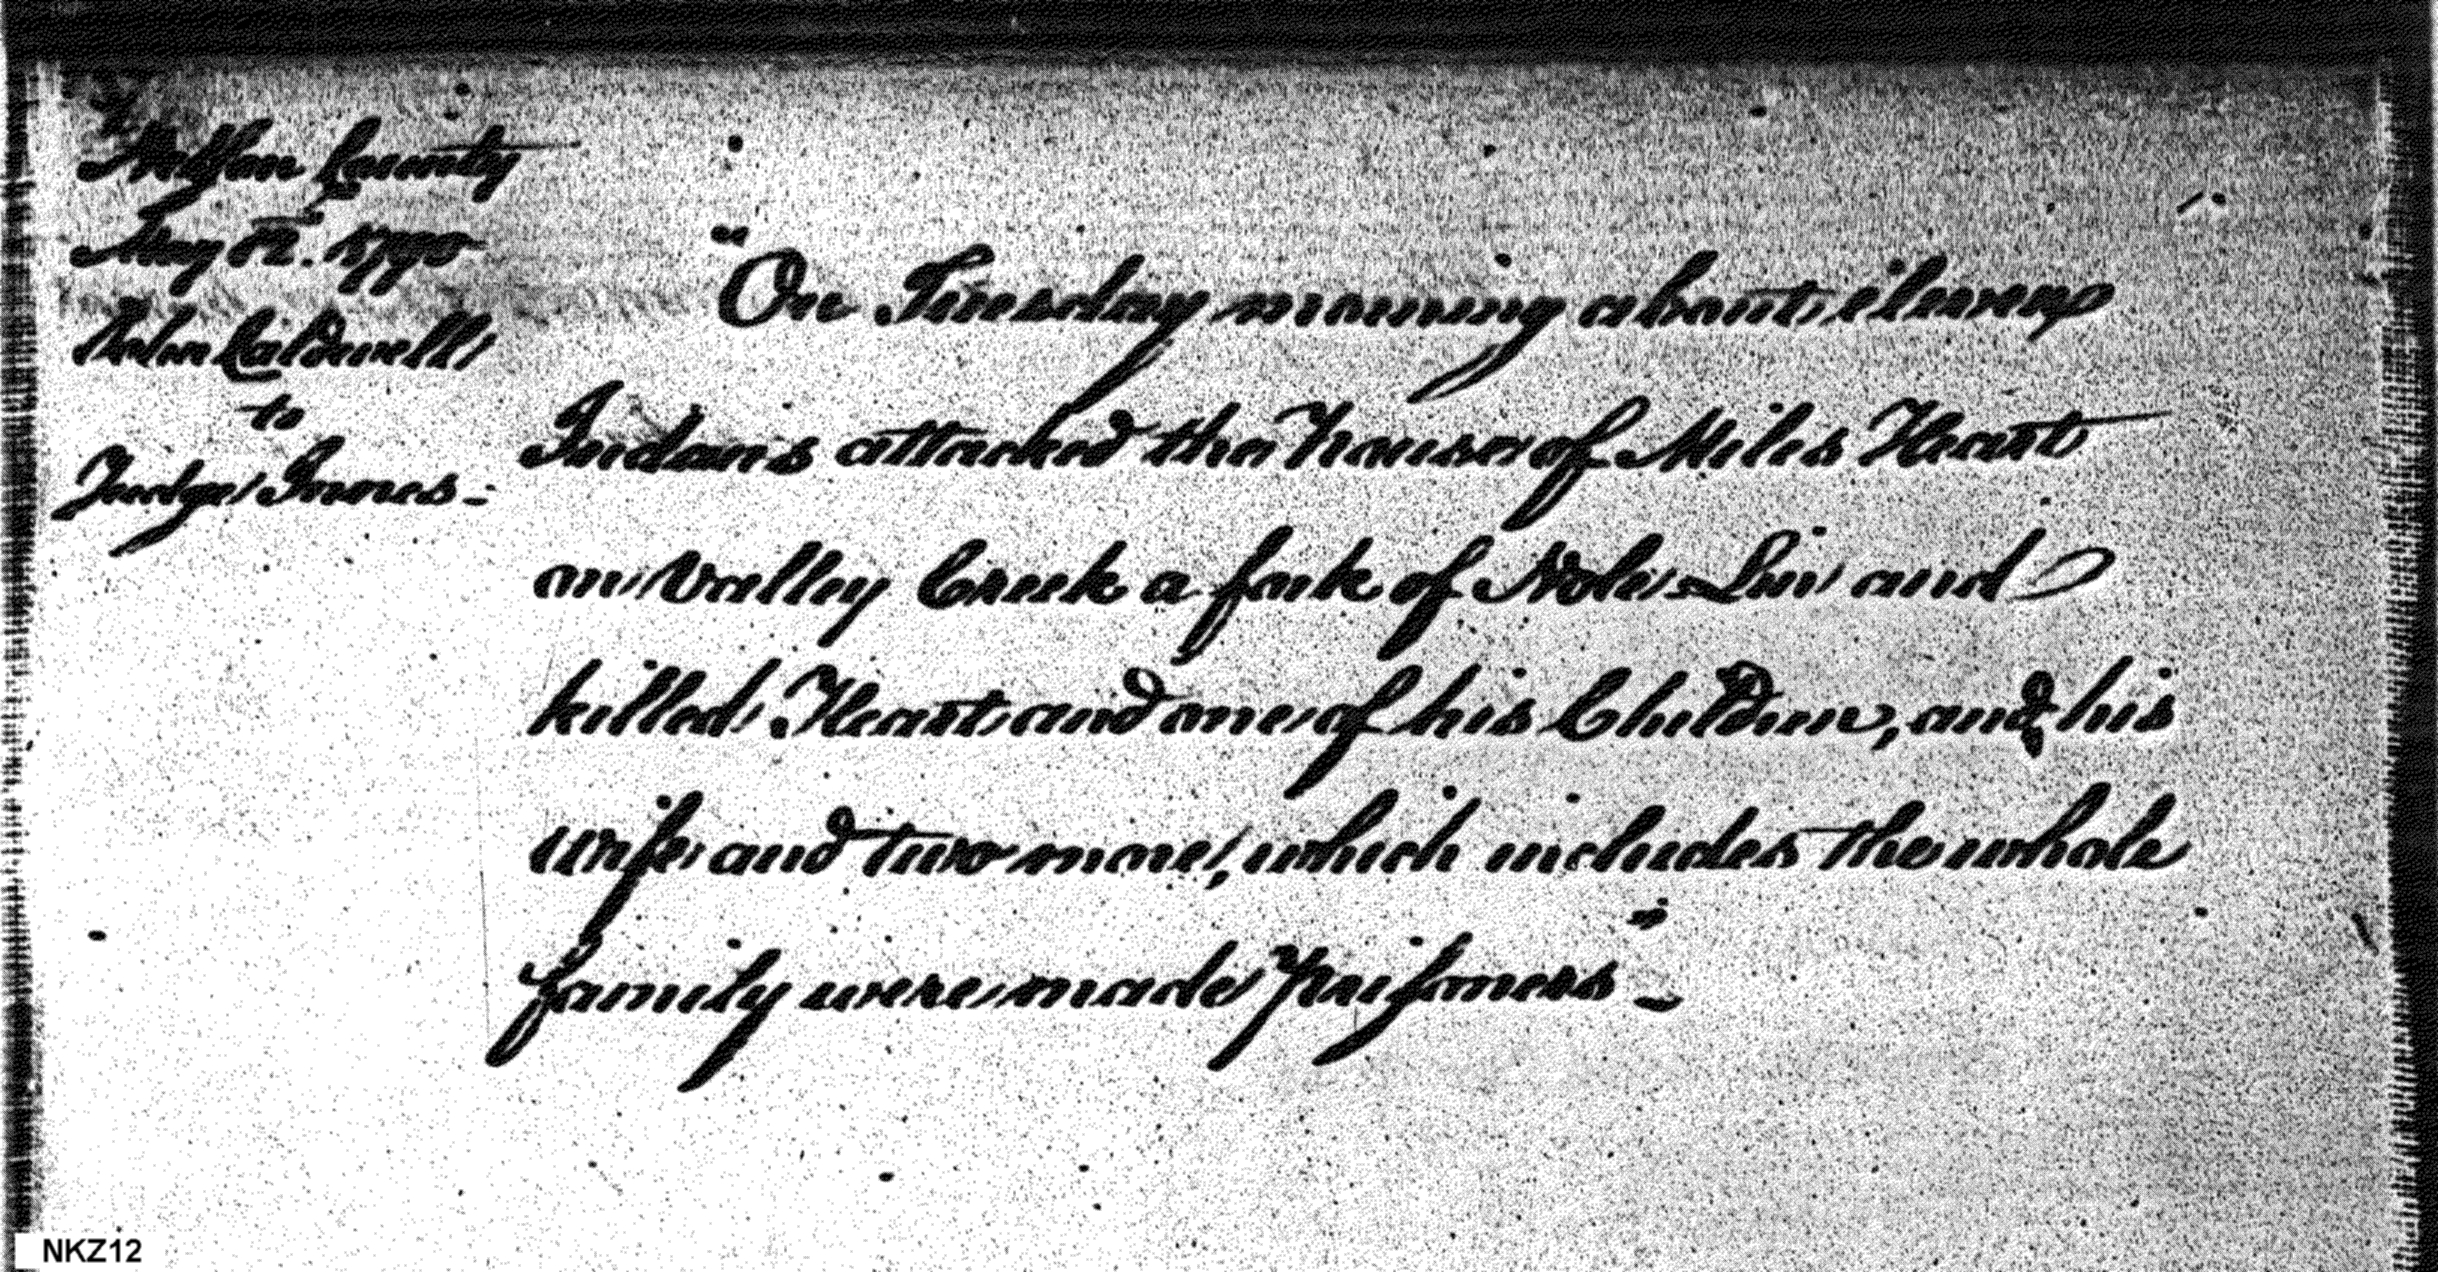 Nelson County
May 12. 1790
John Caldwell
to
Judge Innes -
"On Tuesday morning about eleven
Indians attacked the house of Miles Heart
on Valley Creek a fork of Nole-Lin and
killed Heart and one of his Children, and his
wife and two more, which includes the whole
family were made prisoners" -
NKZ12